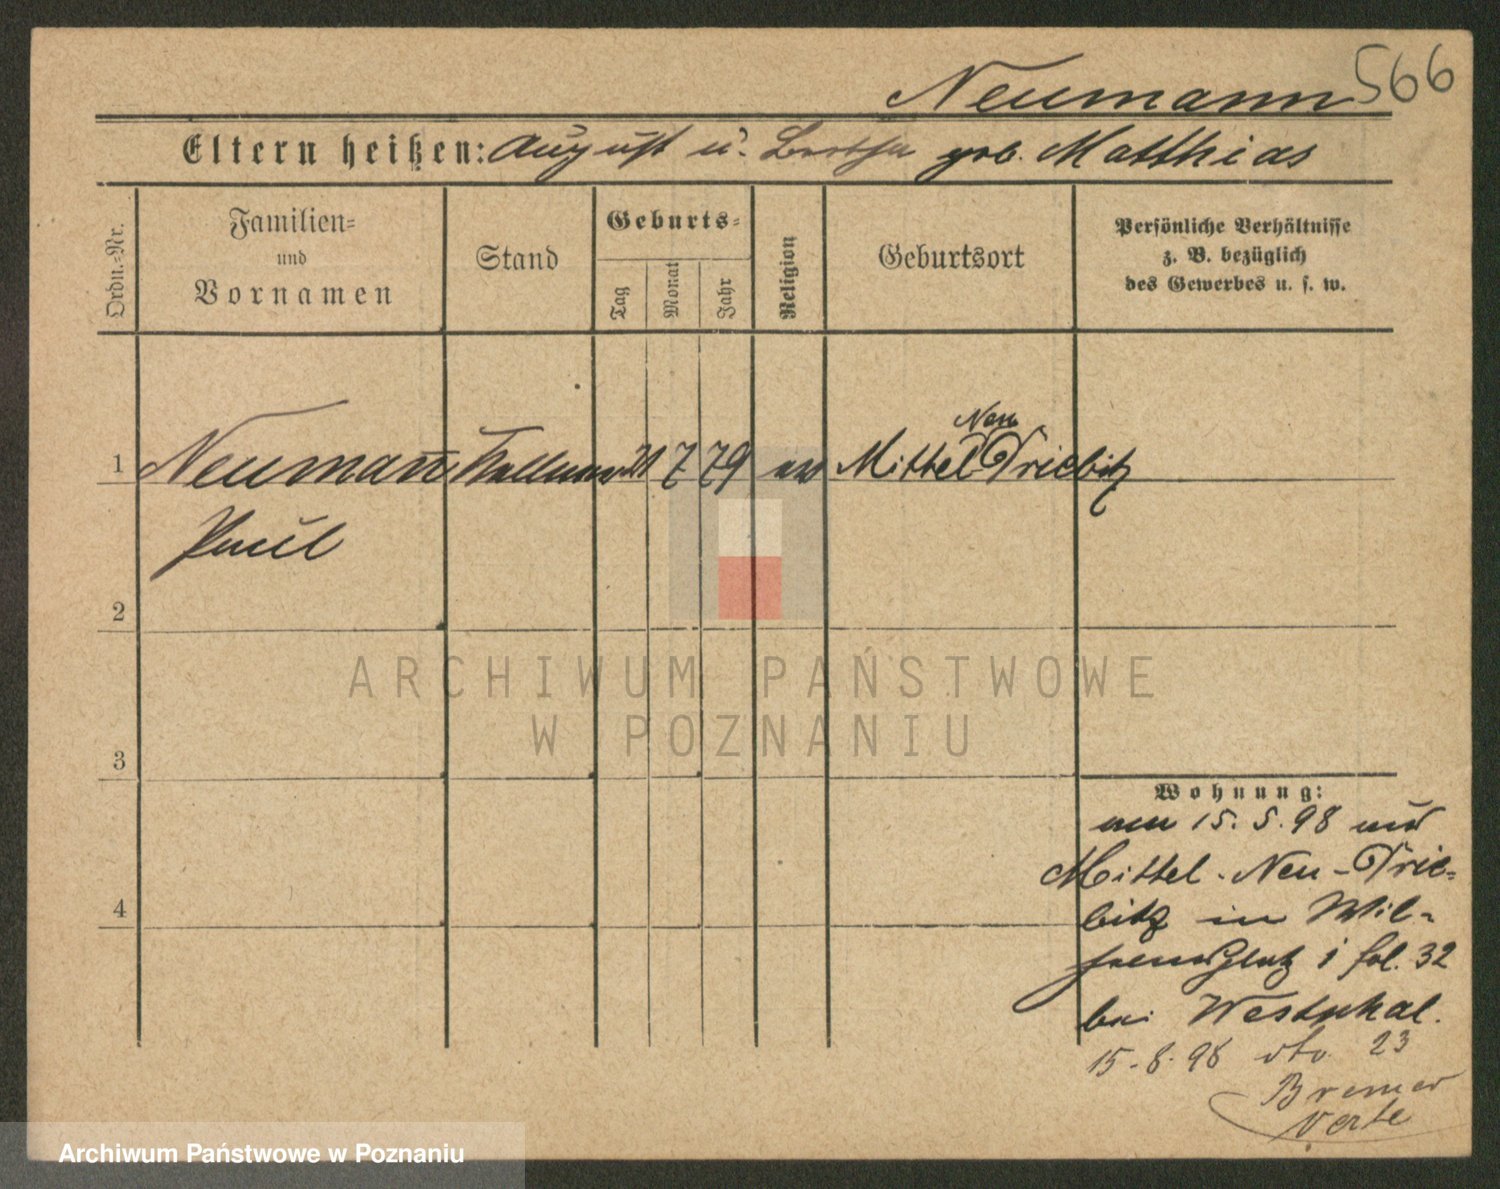 Neumann 566
Eltern heißen: August u. Bertha geb. Matthias
Ordn.-Nr.
Familien-
und
Vornamen
Stand
Geburts-
Tag
Monat
Jahr
Religion
Geburtsort
Persönliche Verhältnisse
z. B. bezüglich
des Gewerbes u. s. w.
Neu
1 Neumann Kellner 21 7 79 ev Mittel Triebitz
Paul
2
3
4
Wohnung:
am 15. 5. 98 aus
Mittel-Neu-Trie-
bitz in Wil-
fol. 32
bei Westphal.
15. 8. 98 dto. 23
Bremer
verte
ARCHIWUM PAŃSTWOWE
W POZNANIU
Archiwum Państwowe w Poznaniu